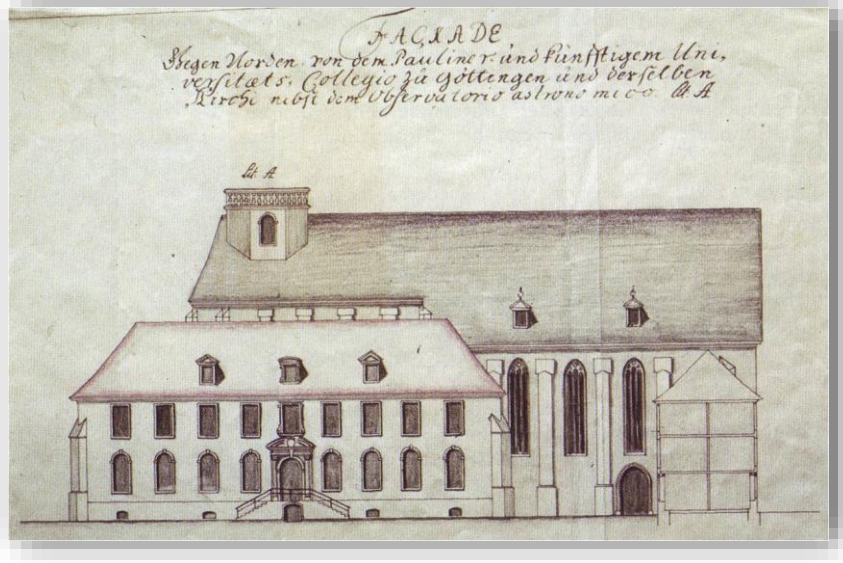 FACXADE
Gegen Norden von dem Pauliner und künfftigem Uni,
versitæts. Collegio zu göttengen und derselben
Kirche nebst dem Observatorio astronomico lit. A
Lit. A